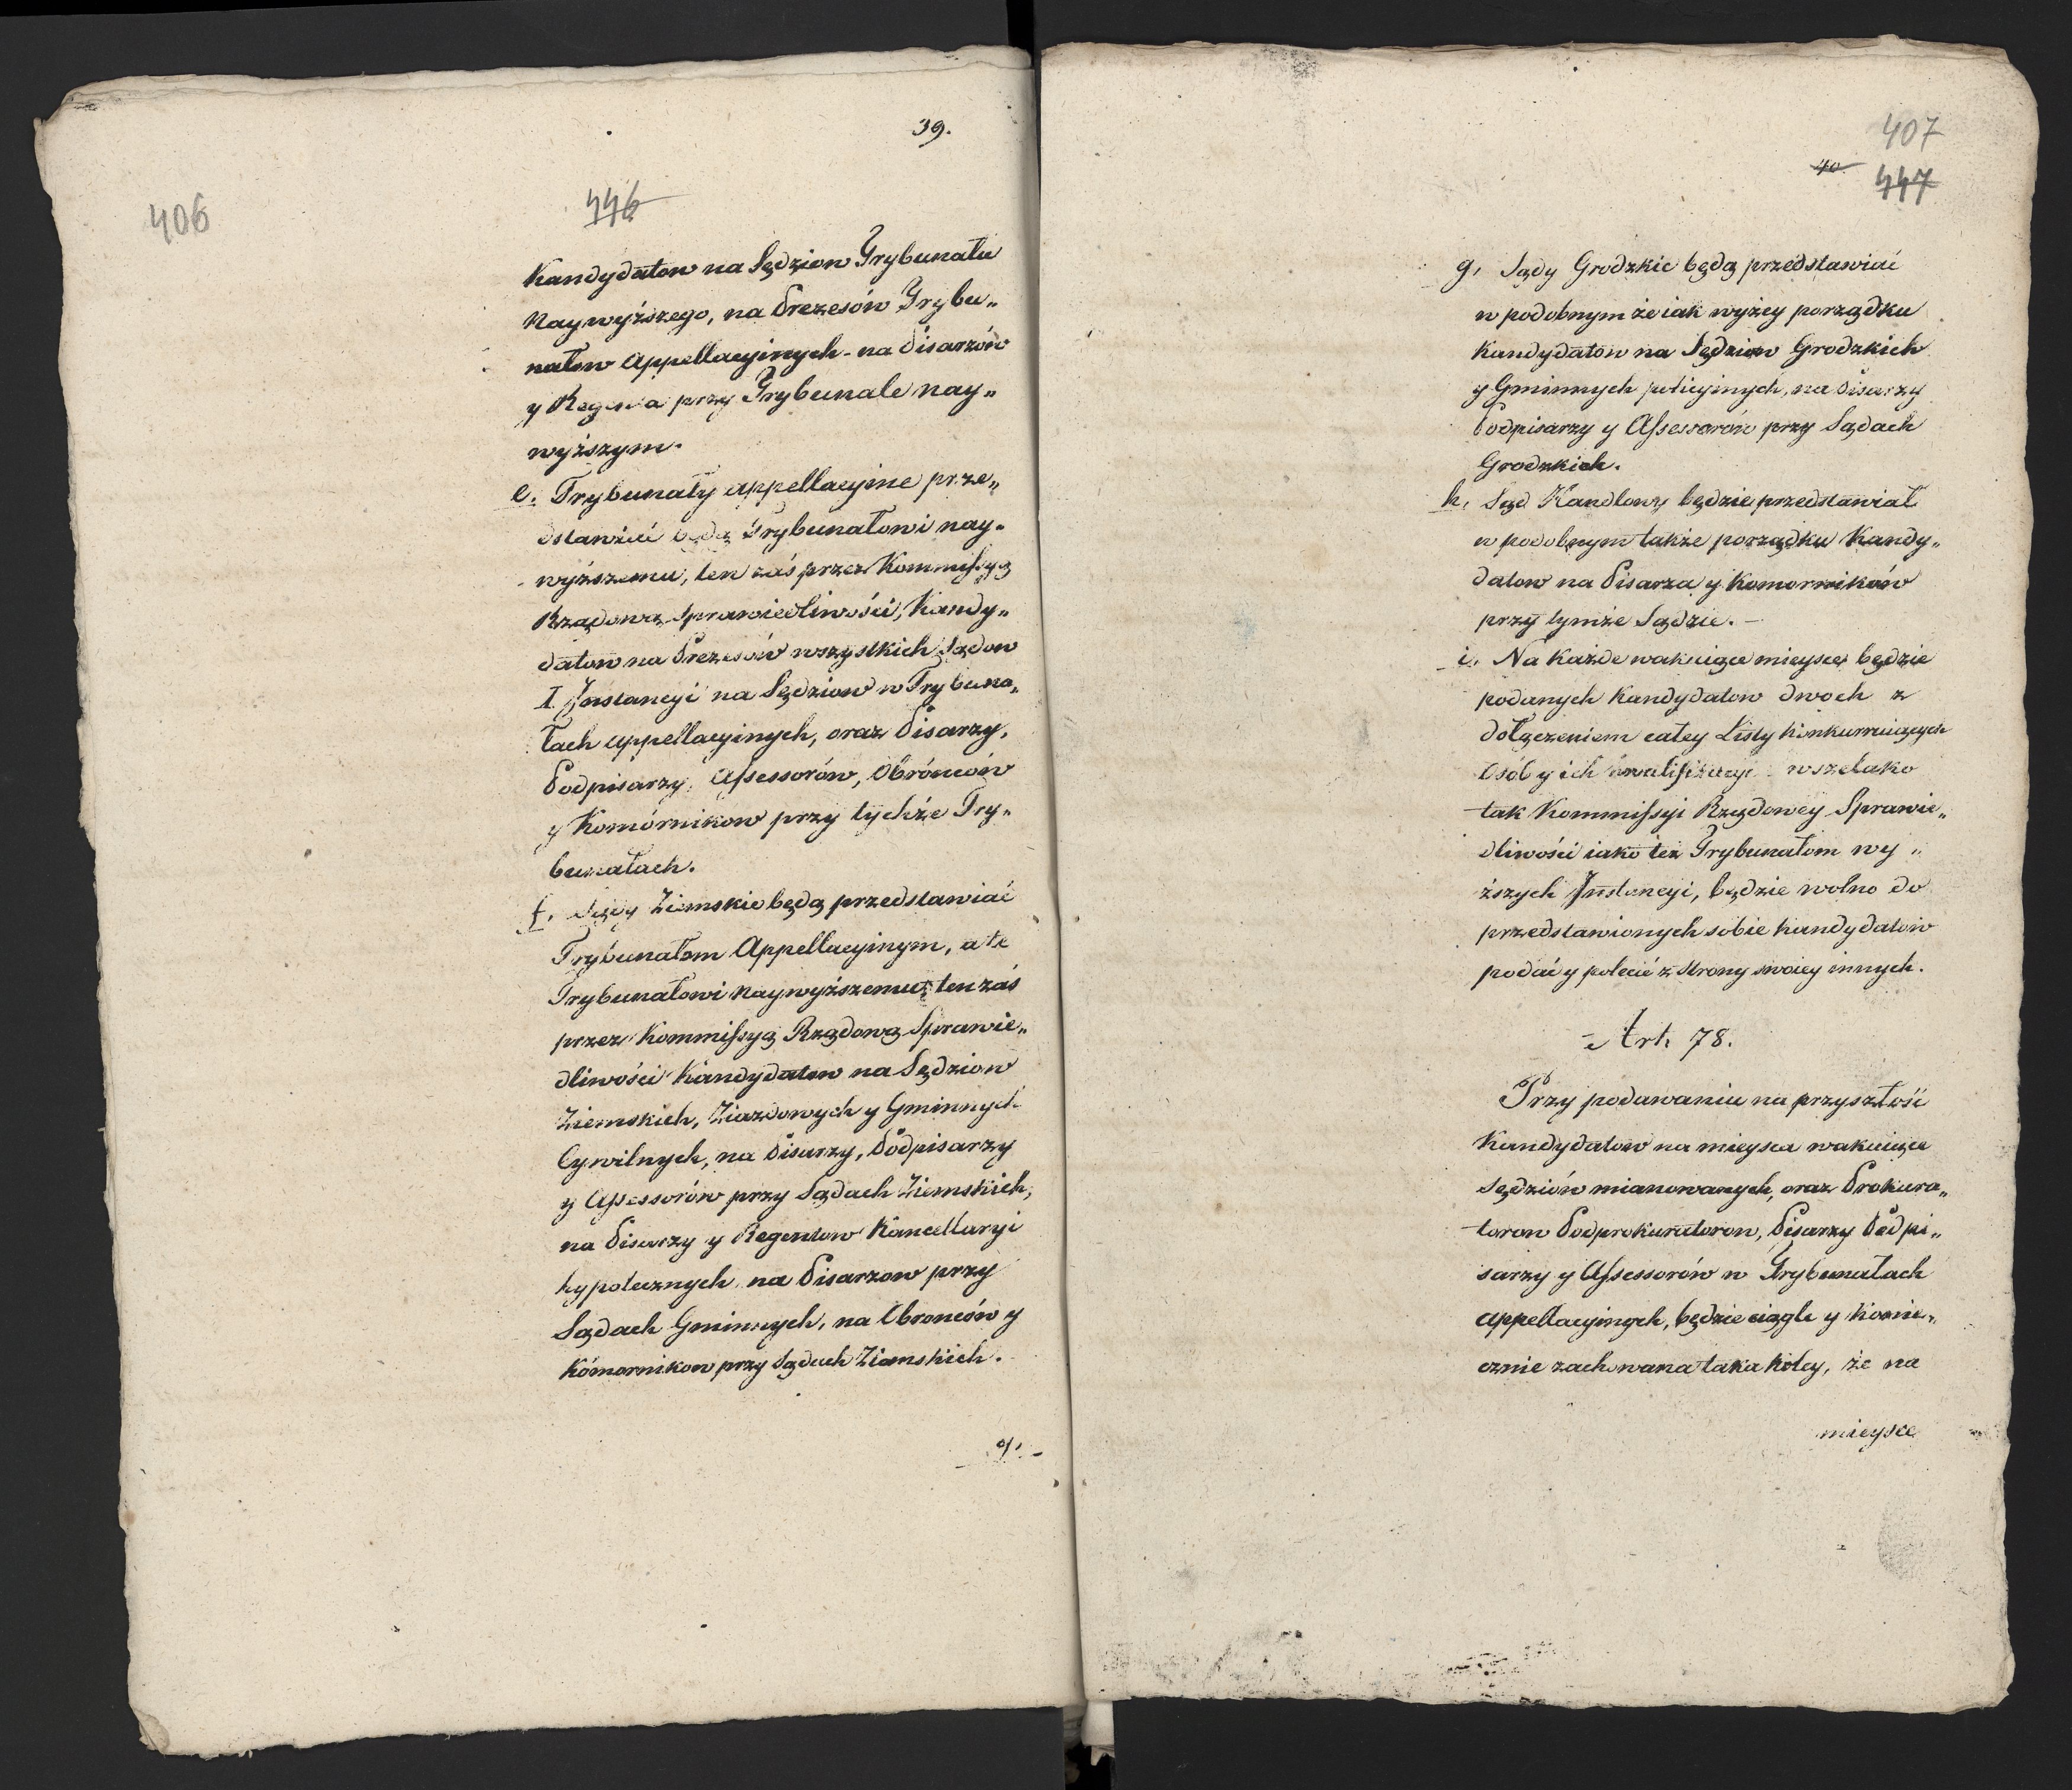 39.
406
446
Kandydatow na Sędziow Trybunału
Naywyższego, na Prezesów Trybu„
nałow Appellacyinych - na Pisarzów
y Regenta przy Trybunale nay„
wyższym.
e. Trybunały appellacyine prze„
dstawiać będą Trybunałowi nay„
wyższemu, ten zaś przez Kommissyą
Rządową Sprawiedliwości, Kandy„
datow na Prezesów wszystkich Sądow
I. Instancyi na Sędziow w Trybuna„
łach appellacyinych, oraz Pisarzy,
Podpisarzy, Assessorów, Obróncow
y Komórnikow przy tychże Try„
bunałach.
f. Sądy Ziemskie będą przedstawiać
Trybunałom Appellacyinym, a te
Trybunałowi Naywyższemu, ten zaś
przez Kommissyą Rządową Sprawie„
dliwości Kandydatow na Sędziow
Ziemskich, Ziazdowych y Gminnych
Cywilnych, na Pisarzy, Podpisarzy
y Assessorów przy Sądach Ziemskich,
na Pisarzy y Regentow Kancellaryi
hypotecznych, na Pisarzow przy
Sądach Gminnych, na Obroncow y
Komornikow przy Sądach Ziemskich.
g. -
407
40
447
g, Sądy Grodzkie będą przedstawiać
w podobnym że iak wyżey porządku
Kandydatow na Sędziow Grodzkich
y Gminnych policyinych, na Pisarzy
Podpisarzy y Assessorów przy Sądach
Grodzkich.
h, Sąd Handlowy będzie przedstawiał
w podobnym także porządku Kandy„
datow na Pisarza y Komorników
przy tymże Sądzie. -
i. Na każde wakuiące mieysce będzie
podanych Kandydatow dwoch z
dołączeniem całey Listy konkurruiących
Osób y ich kwalifikacyi wszelako
tak Kommissyi Rządowey Sprawie„
dliwości iako też Trybunałom wy„
ższych Instancyi, będzie wolno do
przedstawionych sobie kandydatow
podać y polecić z strony swoiey innych.
Art. 78.
Przy podawaniu na przyszłość
Kandydatow na mieysca wakuiące
Sędziów mianowanych, oraz Prokura„
torow Podprokuratorow, Pisarzy Podpi„
sarzy y Assessorów w Trybunałach
appellacyinych, będzie ciągle y konie„
cznie zachowana taka koley, że na
mieysce